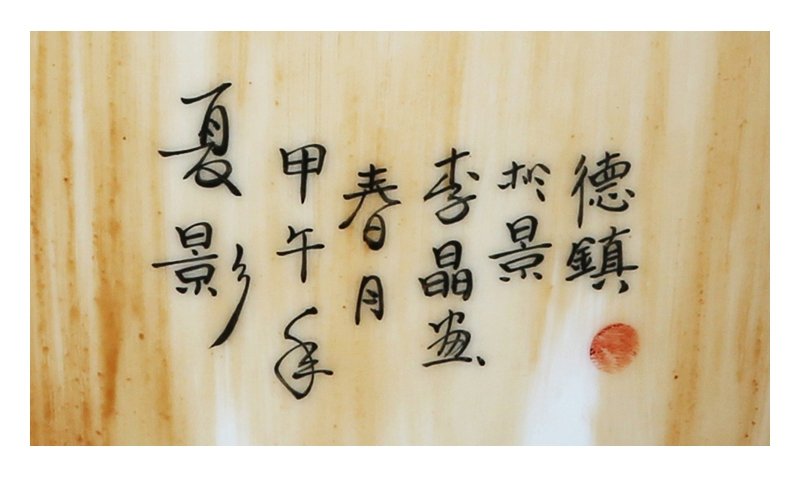 夏影
甲午年
春月
李晶画
於景
德鎮